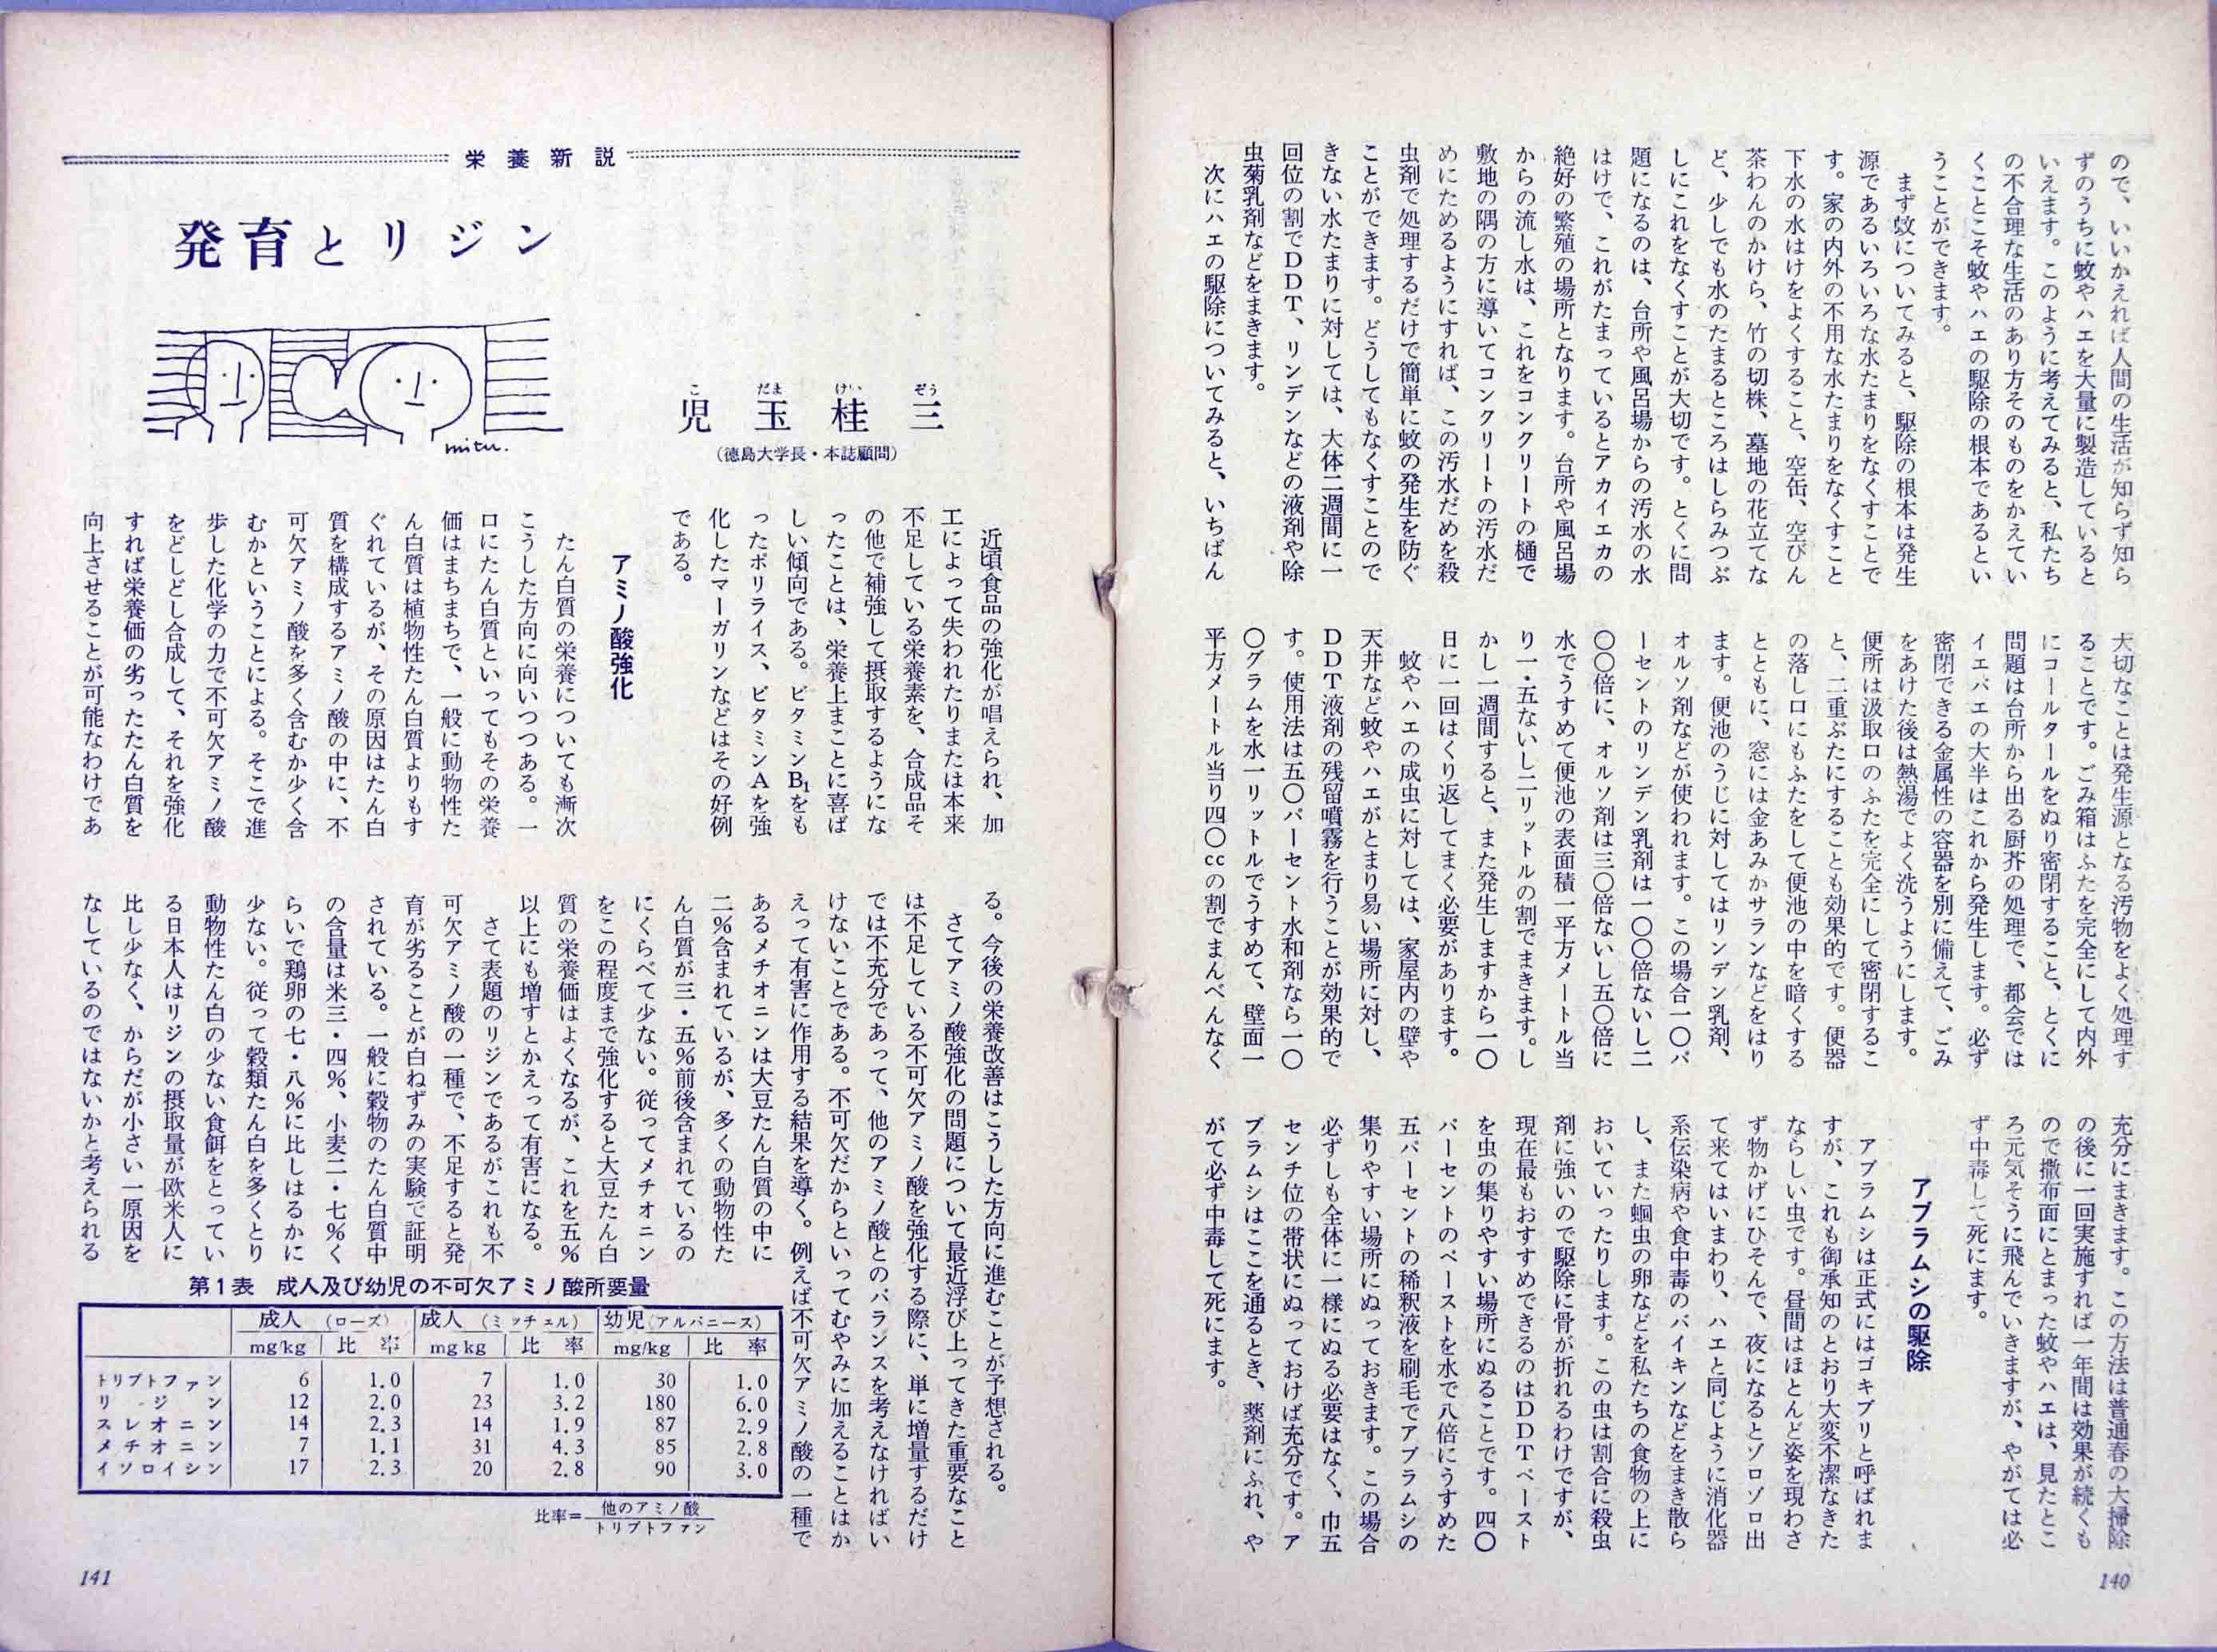 ので、いいかえれば人間の生活が知らず知ら
ずのうちに蚊やハエを大量に製造していると
いえます。このように考えてみると、私たち
の不合理な生活のあり方そのものをかえてい
くことこそ蚊やハエの駆除の根本であるとい
うことができます。
まず蚊についてみると、駆除の根本は発生
源であるいろいろな水たまりをなくすことで
す。家の内外の不用な水たまりをなくすこと
下水の水はけをよくすること、空缶、空びん
茶わんのかけら、竹の切株、墓地の花立てな
ど、少しでも水のたまるところはしらみつぶ
しにこれをなくすことが大切です。とくに問
題になるのは、台所や風呂場からの汚水の水
はけで、これがたまっているとアカイエカの
絶好の繁殖の場所となります。台所や風呂場
からの流し水は、これをコンクリートの樋で
敷地の隅の方に導いてコンクリートの汚水だ
めにためるようにすれば、この汚水だめを殺
虫剤で処理するだけで簡単に蚊の発生を防ぐ
ことができます。どうしてもなくすことので
きない水たまりに対しては、大体二週間に一
回位の割でDDT、リンデンなどの液剤や除
虫菊乳剤などをまきます。
次にハエの駆除についてみると、いちばん
大切なことは発生源となる汚物をよく処理す
ることです。ごみ箱はふたを完全にして内外
にコールタールをぬり密閉すること、とくに
問題は台所から出る厨芥の処理で、都会では
イエバエの大半はこれから発生します。必ず
密閉できる金属性の容器を別に備えて、ごみ
をあけた後は熱湯でよく洗うようにします。
便所は汲取口のふたを完全にして密閉するこ
と、二重ぶたにすることも効果的です。便器
の落し口にもふたをして便池の中を暗くする
とともに、窓には金あみかサランなどをはり
ます。便池のうじに対してはリンデン乳剤、
オルソ剤などが使われます。この場合一〇パ
ーセントのリンデン乳剤は一〇〇倍ないし二
〇〇倍に、オルソ剤は三〇倍ないし五〇倍に
水でうすめて便池の表面積一平方メートル当
り一・五ないし二リットルの割でまきます。し
かし一週間すると、また発生しますから一〇
日に一回はくり返してまく必要があります。
蚊やハエの成虫に対しては、家屋内の壁や
天井など蚊やハエがとまり易い場所に対し、
DDT液剤の残留噴霧を行うことが効果的で
す。使用法は五〇パーセント水和剤なら一〇
〇グラムを水一リットルでうすめて、壁面一
平方メートル当り四〇ccの割でまんべんなく
充分にまきます。この方法は普通春の大掃除
の後に一回実施すれば一年間は効果が続くも
ので撒布面にとまった蚊やハエは、見たとこ
ろ元気そうに飛んでいきますが、やがては必
ず中毒して死にます。
アブラムシの駆除
アブラムシは正式にはゴキブリと呼ばれま
すが、これも御承知のとおり大変不潔なきた
ならしい虫です。昼間はほとんど姿を現わさ
ず物かげにひそんで、夜になるとゾロゾロ出
て来てはいまわり、ハエと同じように消化器
系伝染病や食中毒のバイキンなどをまき散ら
し、また蛔虫の卵などを私たちの食物の上に
おいていったりします。この虫は割合に殺虫
剤に強いので駆除に骨が折れるわけですが、
現在最もおすすめできるのはDDTペースト
を虫の集りやすい場所にぬることです。四〇
パーセントのペーストを水で八倍にうすめた
五パーセントの稀釈液を刷毛でアブラムシの
集りやすい場所にぬっておきます。この場合
必ずしも全体に一様にぬる必要はなく、巾五
センチ位の帯状にぬっておけば充分です。ア
ブラムシはここを通るとき、薬剤にふれ、や
がて必ず中毒して死にます。
140
栄養新説
発育とリジン
mitu.
児玉桂三
こ だま けい ぞう
(徳島大学長・本誌顧問)
近頃食品の強化が唱えられ、加
工によって失われたりまたは本来
不足している栄養素を、合成品そ
の他で補強して摂取するようにな
ったことは、栄養上まことに喜ば
しい傾向である。ビタミンB₁をも
ったポリライス、ビタミンAを強
化したマーガリンなどはその好例
である。
アミノ酸強化
たん白質の栄養についても漸次
こうした方向に向いつつある。一
口にたん白質といってもその栄養
価はまちまちで、一般に動物性た
ん白質は植物性たん白質よりもす
ぐれているが、その原因はたん白
質を構成するアミノ酸の中に、不
可欠アミノ酸を多く含むか少く含
むかということによる。そこで進
歩した化学の力で不可欠アミノ酸
をどしどし合成して、それを強化
すれば栄養価の劣ったたん白質を
向上させることが可能なわけであ
る。今後の栄養改善はこうした方向に進むことが予想される。
さてアミノ酸強化の問題について最近浮び上ってきた重要なこと
は不足している不可欠アミノ酸を強化する際に、単に増量するだけ
では不充分であって、他のアミノ酸とのバランスを考えなければい
けないことである。不可欠だからといってむやみに加えることはか
えって有害に作用する結果を導く。例えば不可欠アミノ酸の一種で
あるメチオニンは大豆たん白質の中に
二％含まれているが、多くの動物性た
ん白質が三・五％前後含まれているの
にくらべて少ない。従ってメチオニン
をこの程度まで強化すると大豆たん白
質の栄養価はよくなるが、これを五％
以上にも増すとかえって有害になる。
さて表題のリジンであるがこれも不
可欠アミノ酸の一種で、不足すると発
育が劣ることが白ねずみの実験で証明
されている。一般に穀物のたん白質中
の含量は米三・四％、小麦二・七％く
らいで鶏卵の七・八％に比しはるかに
少ない。従って穀類たん白を多くとり
動物性たん白の少ない食餌をとってい
る日本人はリジンの摂取量が欧米人に
比し少なく、からだが小さい一原因を
なしているのではないかと考えられる
第1表 成人及び幼児の不可欠アミノ酸所要量
成人 (ローズ) 成人 (ミッチェル) 幼児(アルバニース)
mg/kg 比率 mg kg 比率 mg/kg 比率
トリプトファン 6 1.0 7 1.0 30 1.0
リジン 12 2.0 23 3.2 180 6.0
スレオニン 14 2.3 14 1.9 87 2.9
メチオニン 7 1.1 31 4.3 85 2.8
イソロイシン 17 2.3 20 2.8 90 3.0
比率=他のアミノ酸
トリプトファン
141